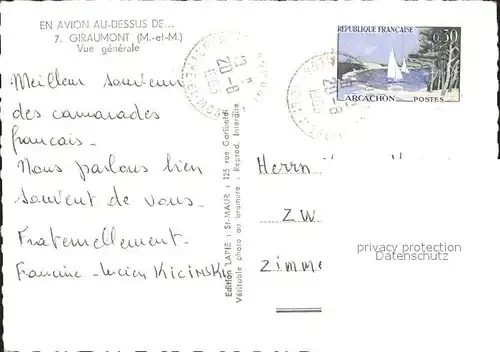 EN AVION AU-DESSUS DE...
7. GIRAUMONT (M.-et-M.)
Vue générale
Meilleur souvenir
des camarades
francais.
Nous parlons bien
souvent de vous.
Fraternellement.
Francine - Lucien KICINSKI
Edition LAPIE : St-MAUR : 125 rue Garibaldi
Véritable photo au bromure : Reprod. Interdite
20-8
1963
20-8
RÉPUBLIQUE FRANÇAISE
0,30
ARCACHON POSTES
Herrn
ZW
Zimme
privacy protection
Datenschutz